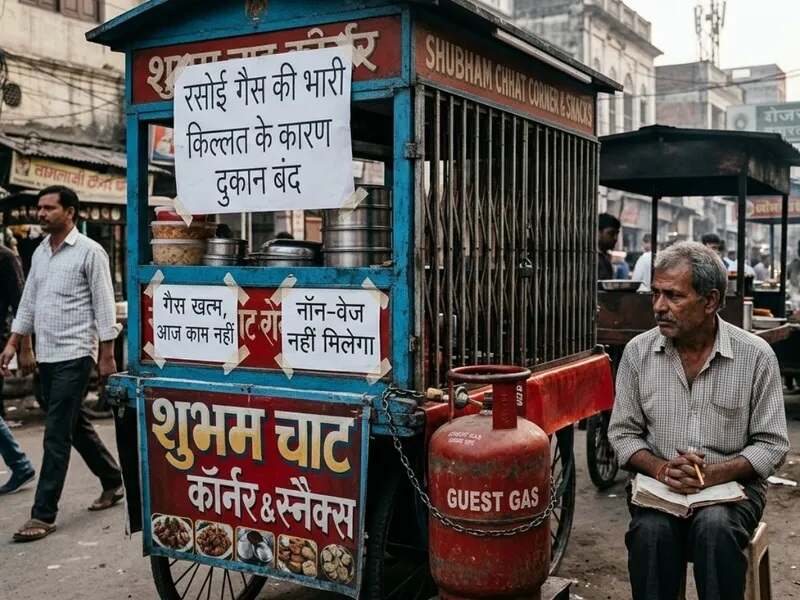 शुभम चाट कॉर्नर
SHUBHAM CHHAT CORNER & SNACKS
रसोई गैस की भारी
किल्लत के कारण
दुकान बंद
गैस खत्म,
आज काम नहीं
नॉन-वेज
नहीं मिलेगा
शुभम चाट
कॉर्नर & स्नैक्स
GUEST GAS